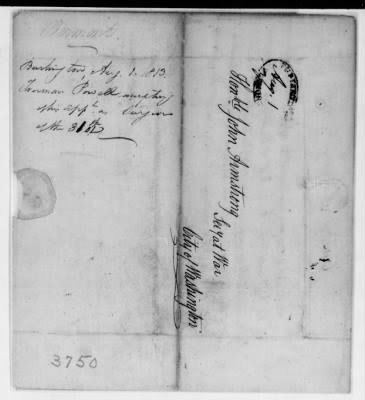 Vermont
Burlington, Aug. 1. 1813.
Truman Powell
of his app.t as Surgeon
of the 31st
3750
Aug. 1
Hon.ble John Armstrong
Sec.y at War
City of Washington